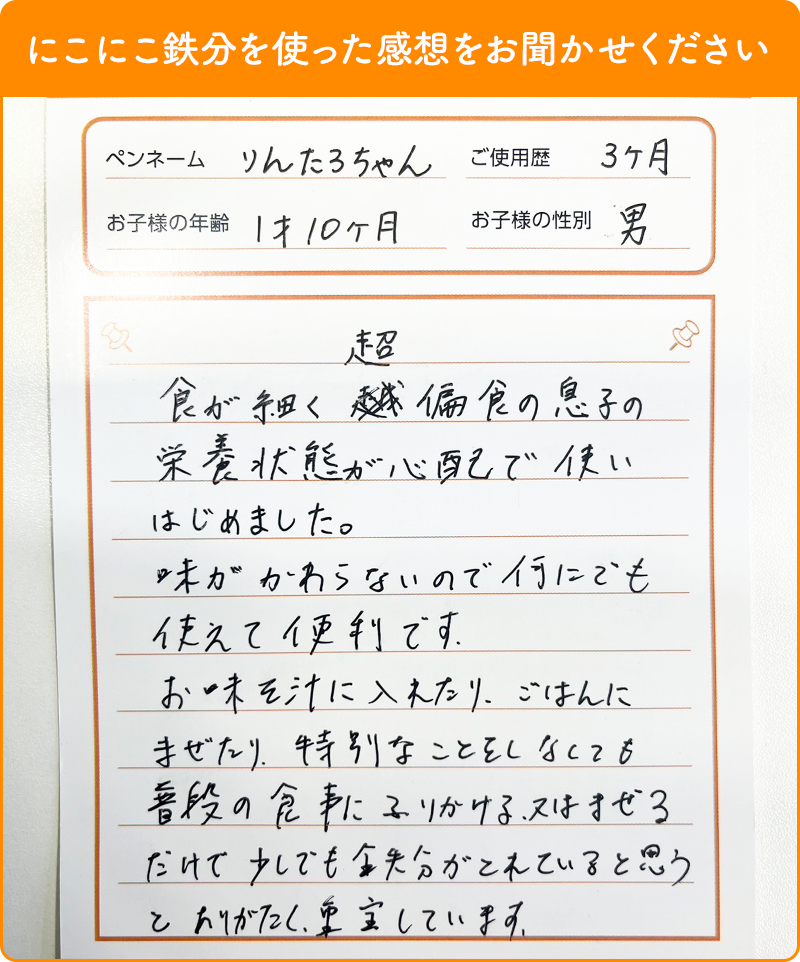 にこにこ鉄分を使った感想をお聞かせください
ペンネーム りんたろちゃん ご使用歴 3ケ月
お子様の年齢 1才10ケ月 お子様の性別 男
超
食が細く 偏食の息子の
栄養状態が心配で使い
はじめました。
味がかわらないので何にでも
使えて便利です。
お味そ汁に入れたり、ごはんに
まぜたり、特別なことをしなくても
普段の食事にふりかける、又はまぜる
だけで少しでも鉄分がとれていると思う
とありがたく、重宝しています。